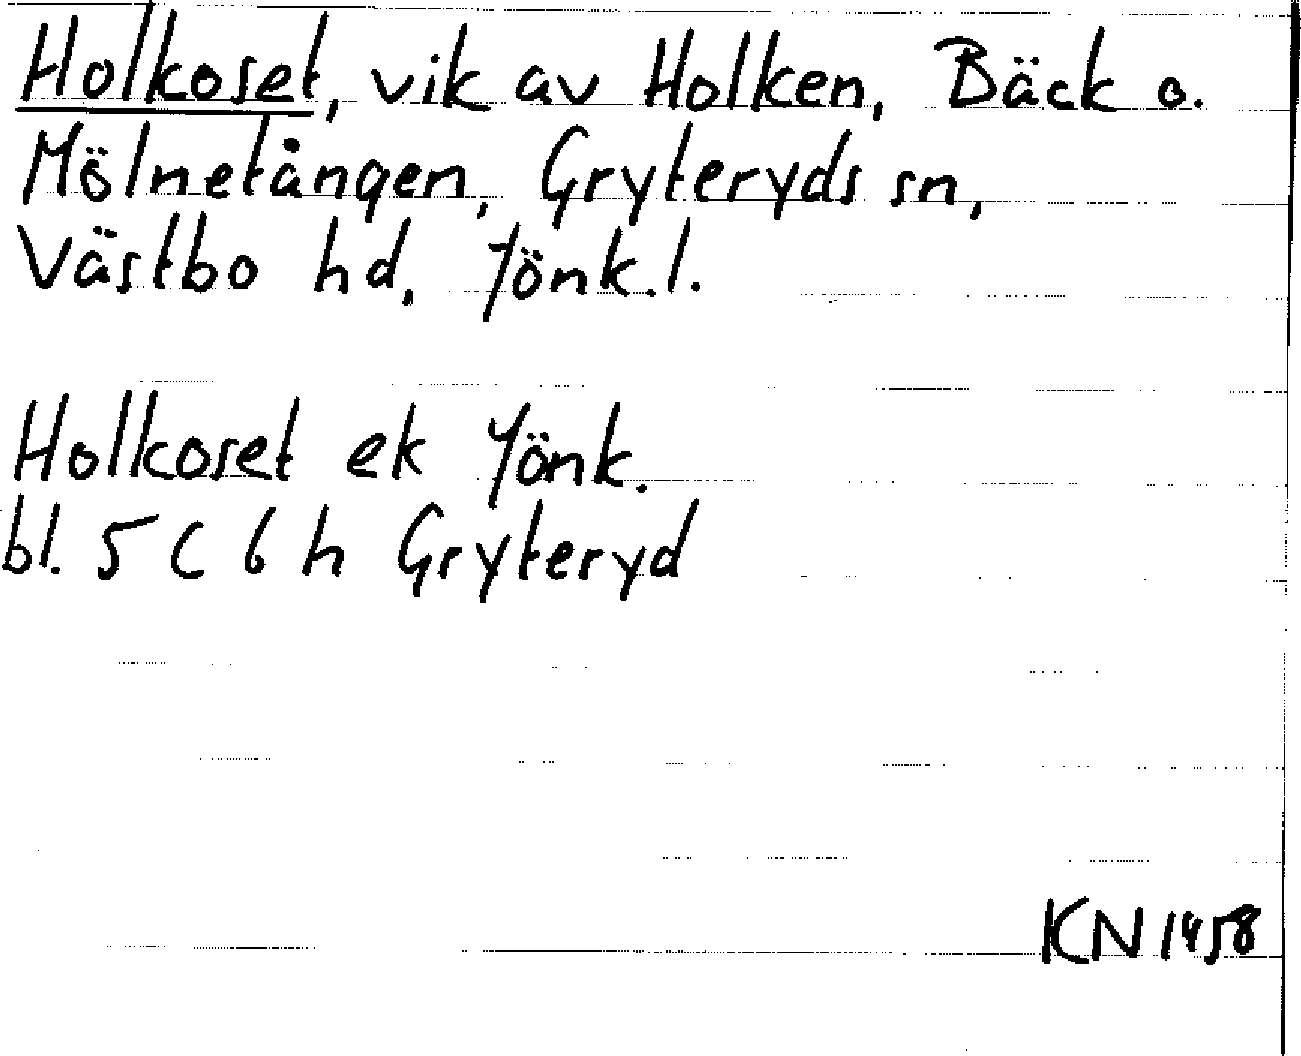 Holkoset, vik av Holken, Bäck o.
Mölnetången, Gryteryds sn,
Västbo hd, Jönk.l.
Holkoset ek Jönk.
bl. 5 C 6 h Gryteryd
KN 1458